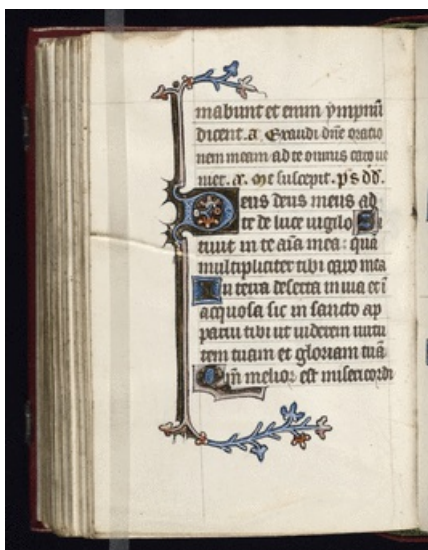 mabunt et enim ẏmpnū
dicent. a. Exaudi dn̄e oratio
nem meam ad te omnis caro ue
niet. a. Me suscepit. ps dd̄.
Deus deus meus ad
te de luce uigilo S
itiuit in te aīa mea: quā
multipliciter tibi caro mea
In terra deserta inuia et ī
acquosa sic in sancto ap
parui tibi ut uiderem uirtu
tem tuam et gloriam tuā
Qm̄ melior est misericordi